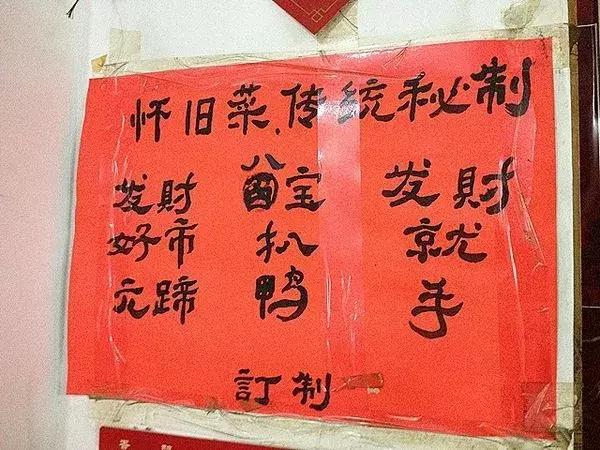 怀旧菜.传统秘制
发財
好市
元蹄
八宝
扒
鸭
发財
就
手
訂制